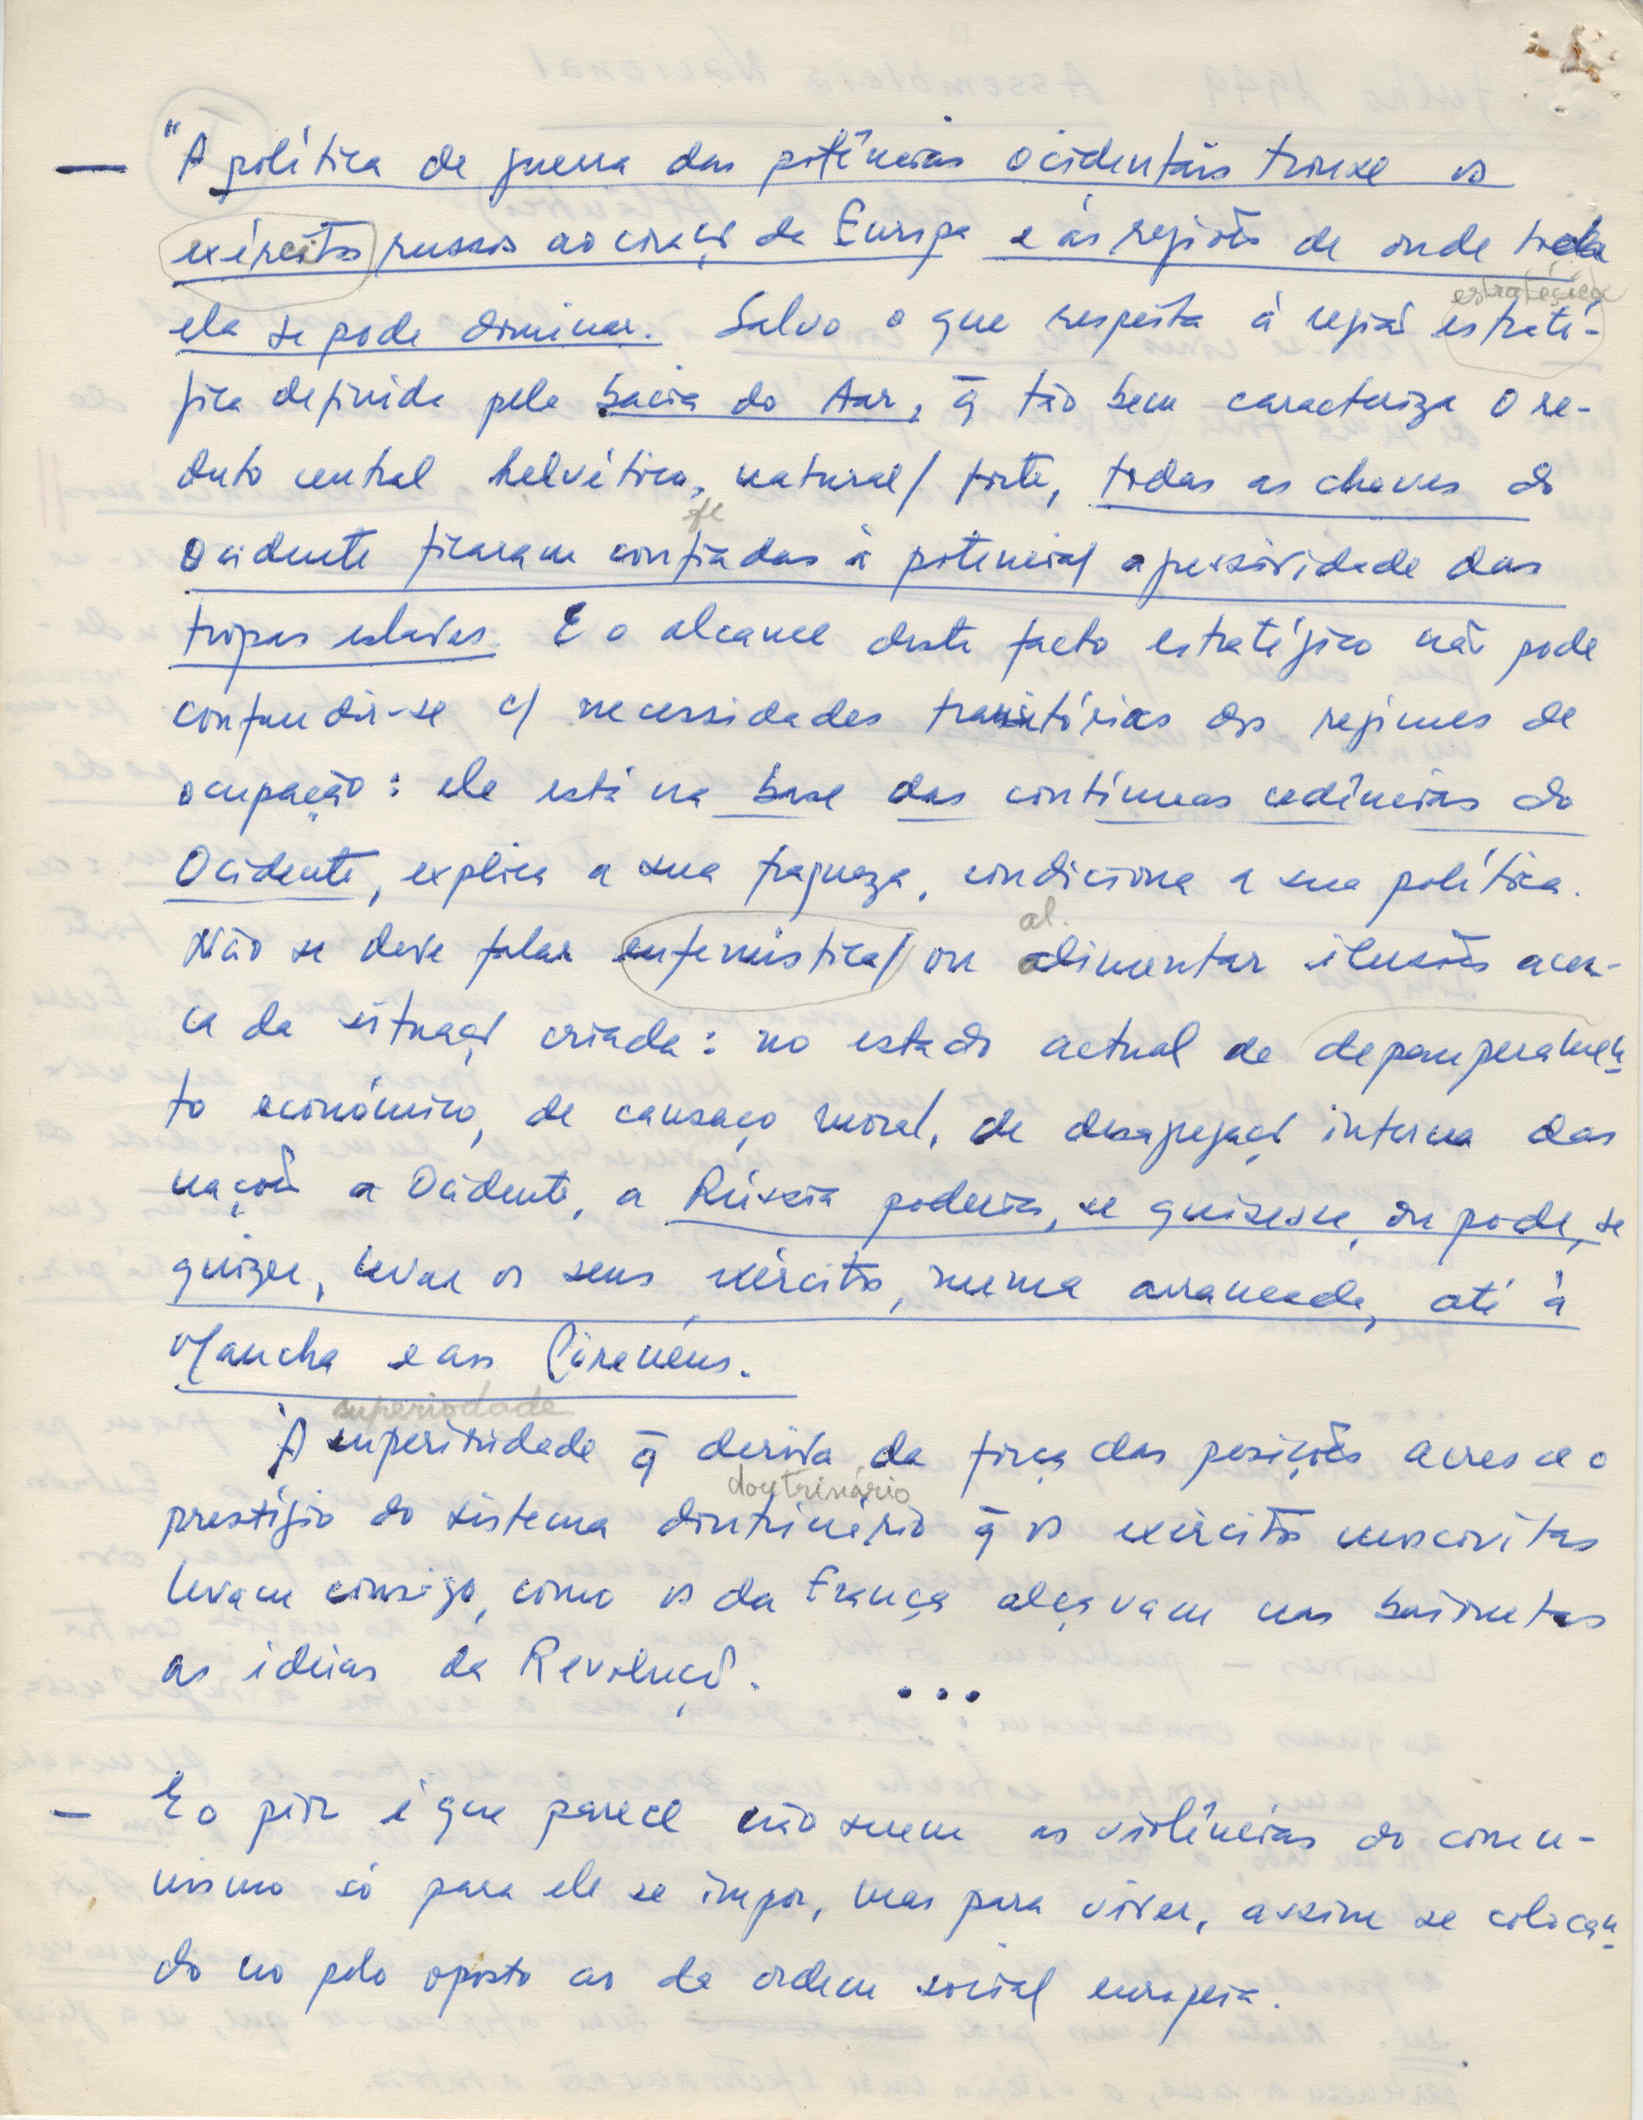 — "A política de guerra das potências ocidentais trouxe os
exércitos russos ao coraçã da Europa e às regiões de onde toda
estratégica
ela se pode dominar. Salvo o que respeita à regiã estraté-
gica definida pela bacia do Aar, q̃ tão bem caracteriza o re-
duto central helvético, natural/ forte, todas as chaves do
Ocidente ficaram confiadas à potencial agressividade das
tropas eslavas. E o alcance deste facto estratégico não pode
confundir-se c/ necessidades transitórias dos regimes de
ocupação: ele está na base das contínuas cedências do
Ocidente, explica a sua fraqueza, condiciona a sua política.
al.
Não se deve falar eufemistica/ ou alimentar ilusões acer-
ca da situaçã criada: no estado actual de depauperamen-
to económico, de cansaço moral, de desagregaçã interna das
nações a Ocidente, a Rússia poderia, se quisesse, ou pode, se
quizer, levar os seus exércitos, numa arrancada, até à
Mancha e aos Pirenéus.
superiodade
À superioridade q̃ deriva da força das posições acresce o
doutrinário
prestígio do sistema doutrinário q̃ os exércitos moscovitas
levam consigo, como os da França alçavam nas baionetas
as ideias da Revoluçã. ...
— E o pior é que parece não serem as violências do comu-
nismo só para ele se impor, mas para viver, assim se colocan-
do no polo oposto ao da ordem social europeia.